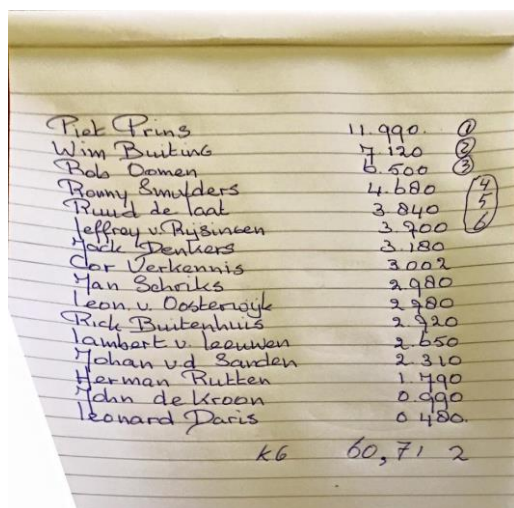 Piet Prins 11.990. ①
Wim Buiting 7.120 ②
Bob Oomen 6.500 ③
Ronny Smulders 4.680 4
Ruud de Laat 3.840 5
Jeffrey v. Rijsingen 3.700 6
Jack Denkers 3.180
Cor Verkennis 3.002
Jan Schriks 2.980
Leon v. Oosterwijk 2.980
Rick Buitenhuis 2.920
Lambert v. Leeuwen 2.650
Johan v.d Sanden 2.310
Herman Rutten 1.790
John de Kroon 0.990
Leonard Daris 0.480.
KG 60,71 2